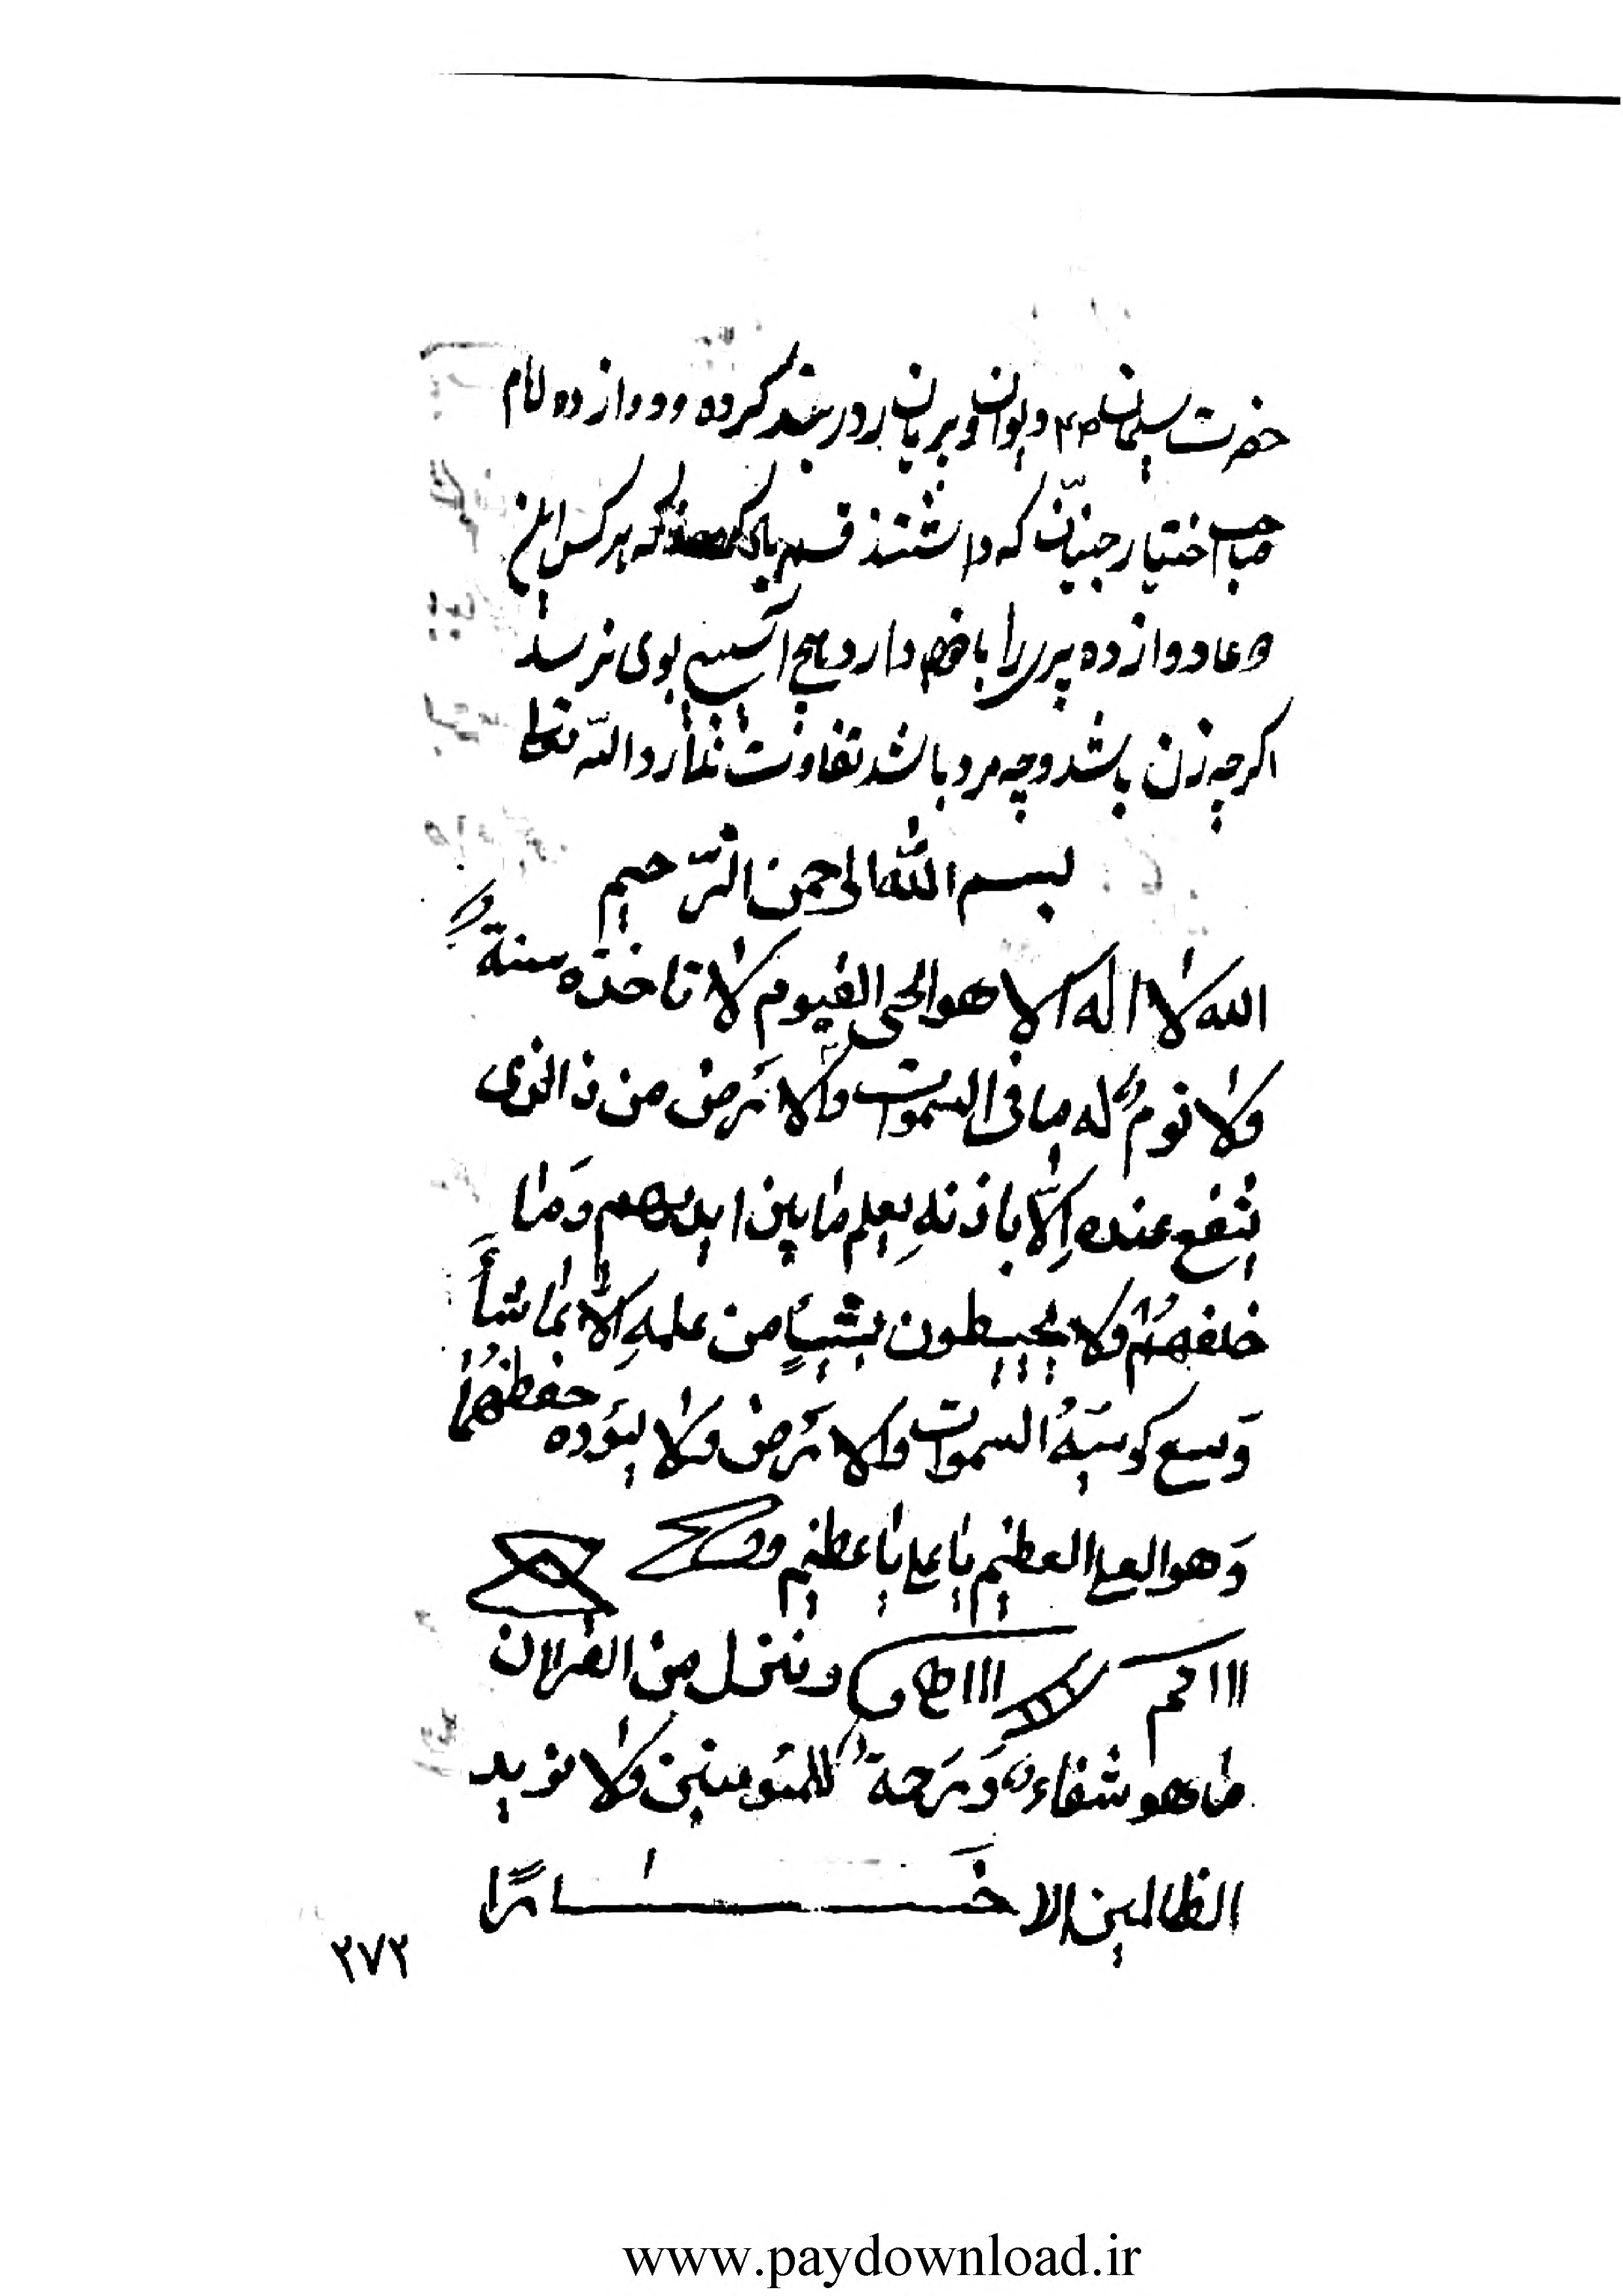 حضرت سلیمان دیوان و پریان را در بند کرده و دوازده امام
صاحب اختیار جنیان که داشتند قسم یاد که هر کس این
دعا دوازده پری را با خود دارد هیچ آسیب بوی نرسد
اگر چه زن باشد و چه مرد باشد تفاوت ندارد الله تعالی
بسم الله الرحمن الرحیم
الله لا اله الا هو الحی القیوم لا تاخذه سنة
ولا نوم له ما فی السموات والارض من ذالذی
یشفع عنده اِلّا باذنهِ یعلم ما بین ایدیهم وَما
خلفهُم ولا یحیطون بشیءٍ من علمهِ الّا بما شاءَ
وَسع کرسیّهُ السموات والارض ولا یَؤده حفظهُما
وَهو العلی العظیم یا علی یا عظیم
وننزل من القرلان
ما هو شفاء وَرَحمة للمؤمنین ولا نزید
الظالمین الا خَسارًا
۲۷۲
www.paydownload.ir